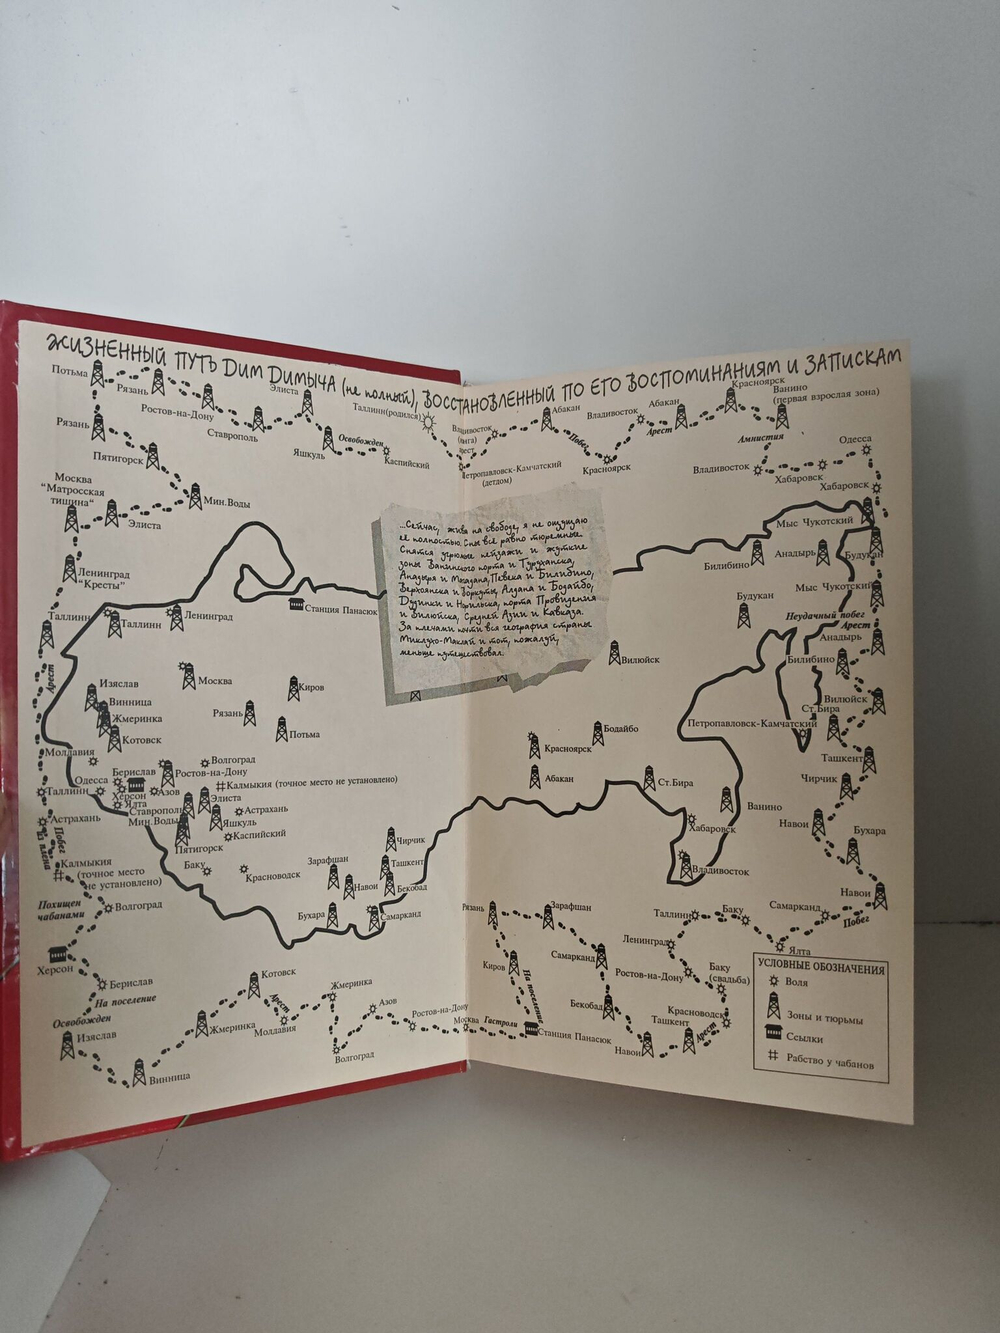 ЖИЗНЕННЫЙ ПУТЬ ДИМ ДИМЫЧА (не полный), ВОССТАНОВЛЕННЫЙ ПО ЕГО ВОСПОМИНАНИЯМ И ЗАПИСКАМ
Потьма
Рязань
Ростов-на-Дону
Ставрополь
Элиста
Яшкуль
Освобожден
Каспийский
Таллинн(родился)
Владивосток
Петропавловск-Камчатский
(детдом)
Абакан
Побег
Красноярск
Владивосток
Абакан
Арест
Красноярск
Ванино
(первая взрослая зона)
Амнистия
Владивосток
Хабаровск
Одесса
Хабаровск
Рязань
Пятигорск
Мин.Воды
Москва
"Матросская
тишина"
Элиста
Ленинград
"Кресты"
Таллинн
Арест
...Сейчас, живя на свободе, я не ощущаю
ее полностью. Сны все равно тюремные.
Снятся угрюмые пейзажи и жуткие
зоны Ванинского порта и Туруханска,
Анадыря и Магадана, Певека и Билибино,
Верхоянска и Воркуты, Алдана и Бодайбо,
Дудинки и Норильска, порта Провидения
и Вилюйска, Средней Азии и Кавказа.
За плечами почти вся география страны
Миклухо-Маклай и тот, пожалуй,
меньше путешествовал.
Мыс Чукотский
Билибино
Анадырь
Будукан
Мыс Чукотский
Будукан
Неудачный побег
Арест
Анадырь
Билибино
Вилюйск
Ст.Бира
Петропавловск-Камчатский
Ташкент
Чирчик
Навои
Бухара
Навои
Станция Панасюк
Таллинн
Ленинград
Москва
Киров
Рязань
Потьма
Изяслав
Винница
Жмеринка
Котовск
Молдавия
Волгоград
Берислав
Ростов-на-Дону
Одесса
Херсон
Азов
Калмыкия (точное место не установлено)
Таллинн
Ялта
Элиста
Ставрополь
Астрахань
Мин.Воды
Яшкуль
Каспийский
Пятигорск
Баку
Красноводск
Вилюйск
Бодайбо
Красноярск
Абакан
Ст.Бира
Ванино
Хабаровск
Владивосток
Чирчик
Зарафшан
Ташкент
Навои
Бекобад
Бухара
Самарканд
Астрахань
Побег
из плена
Калмыкия
(точное место
не установлено)
Похищен
чабанами
Волгоград
Херсон
Берислав
На поселение
Освобожден
Изяслав
Винница
Жмеринка
Котовск
Арест
Молдавия
Жмеринка
Волгоград
Азов
Ростов-на-Дону
Москва
Гастроли
Станция Панасюк
На поселение
Киров
Рязань
Зарафшан
Самарканд
Бекобад
Навои
Ташкент
Арест
Красноводск
Баку
(свадьба)
Ростов-на-Дону
Ленинград
Таллинн
Баку
Ялта
Самарканд
Побег
УСЛОВНЫЕ ОБОЗНАЧЕНИЯ
Воля
Зоны и тюрьмы
Ссылки
Рабство у чабанов